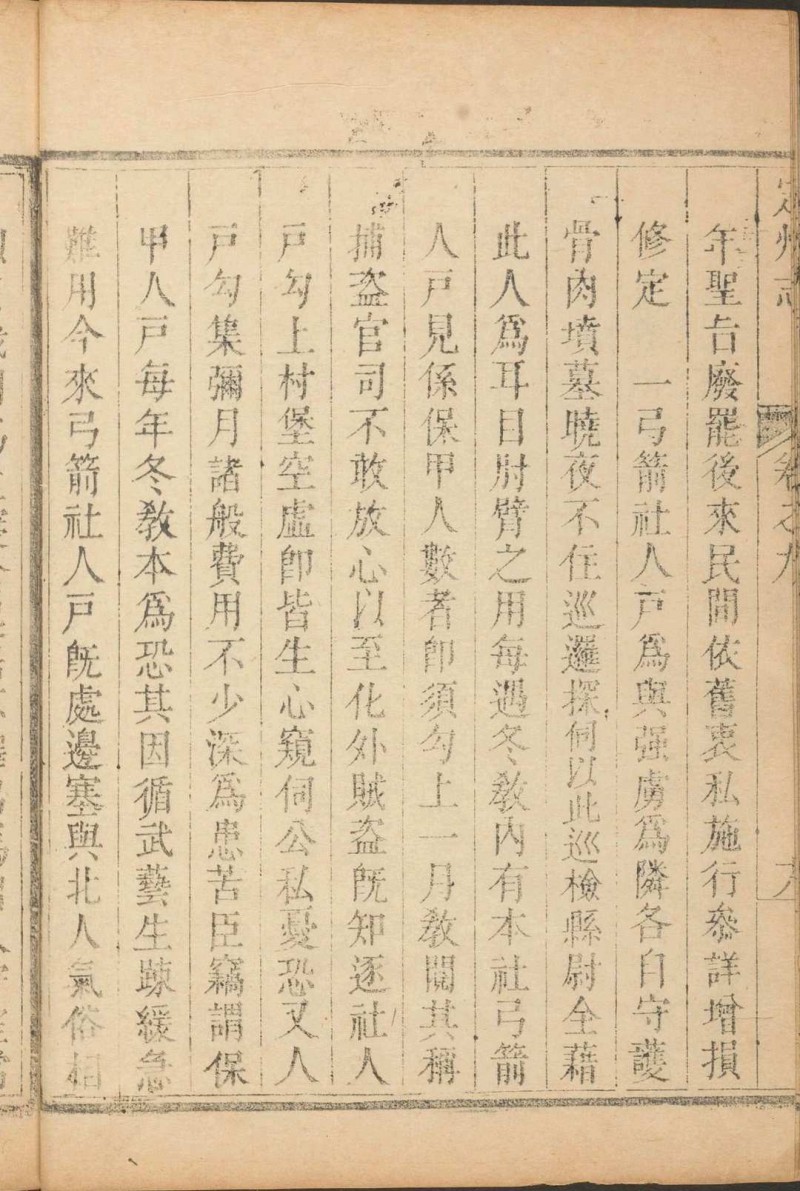 定州志 卷之九 六
年聖旨廢罷後來民間依舊衷私施行叅詳增損
修定 一弓箭社人戸爲與强虜爲隣各自守護
骨肉墳墓曉夜不住巡邏探伺以此巡檢縣尉全藉
此人爲耳目肘臂之用每遇冬教內有本社弓箭
人戸見係保甲人數者卽須勾上一月教閱其稱
捕盜官司不敢放心以至化外賊盜旣知逐社人
戸勾上村堡空虛卽皆生心窺伺公私憂恐又人
戸勾集彌月諸般費用不少深爲患苦臣竊謂保
甲人戸每年冬教本爲恐其因循武藝生踈緩急
難用今來弓箭社人戸旣處邊塞與北人氣俗相